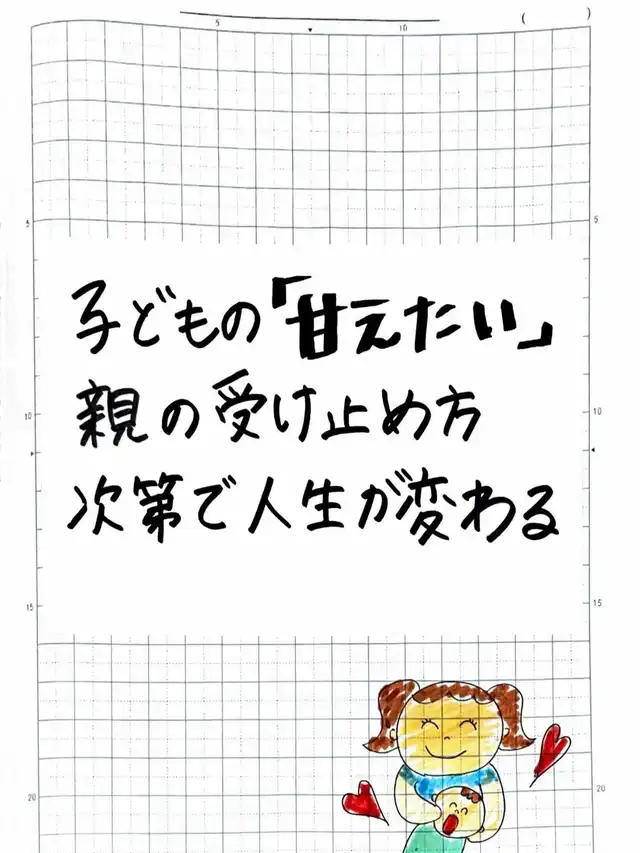 5 10 ( )
5 5
子どもの「甘えたい」
親の受け止め方
10 10
次第で人生が変わる
15 15
20 20